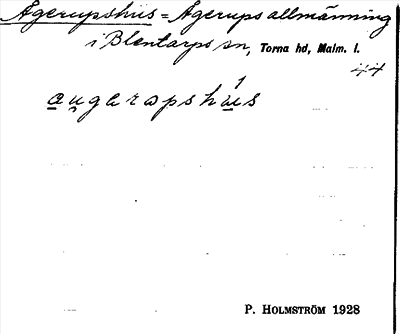 Ågerupshus = Ågerups allmänning
i Blentarps sn, Torna hd, Malm. l.
44
au̯gerapshús
P. HOLMSTRÖM 1928